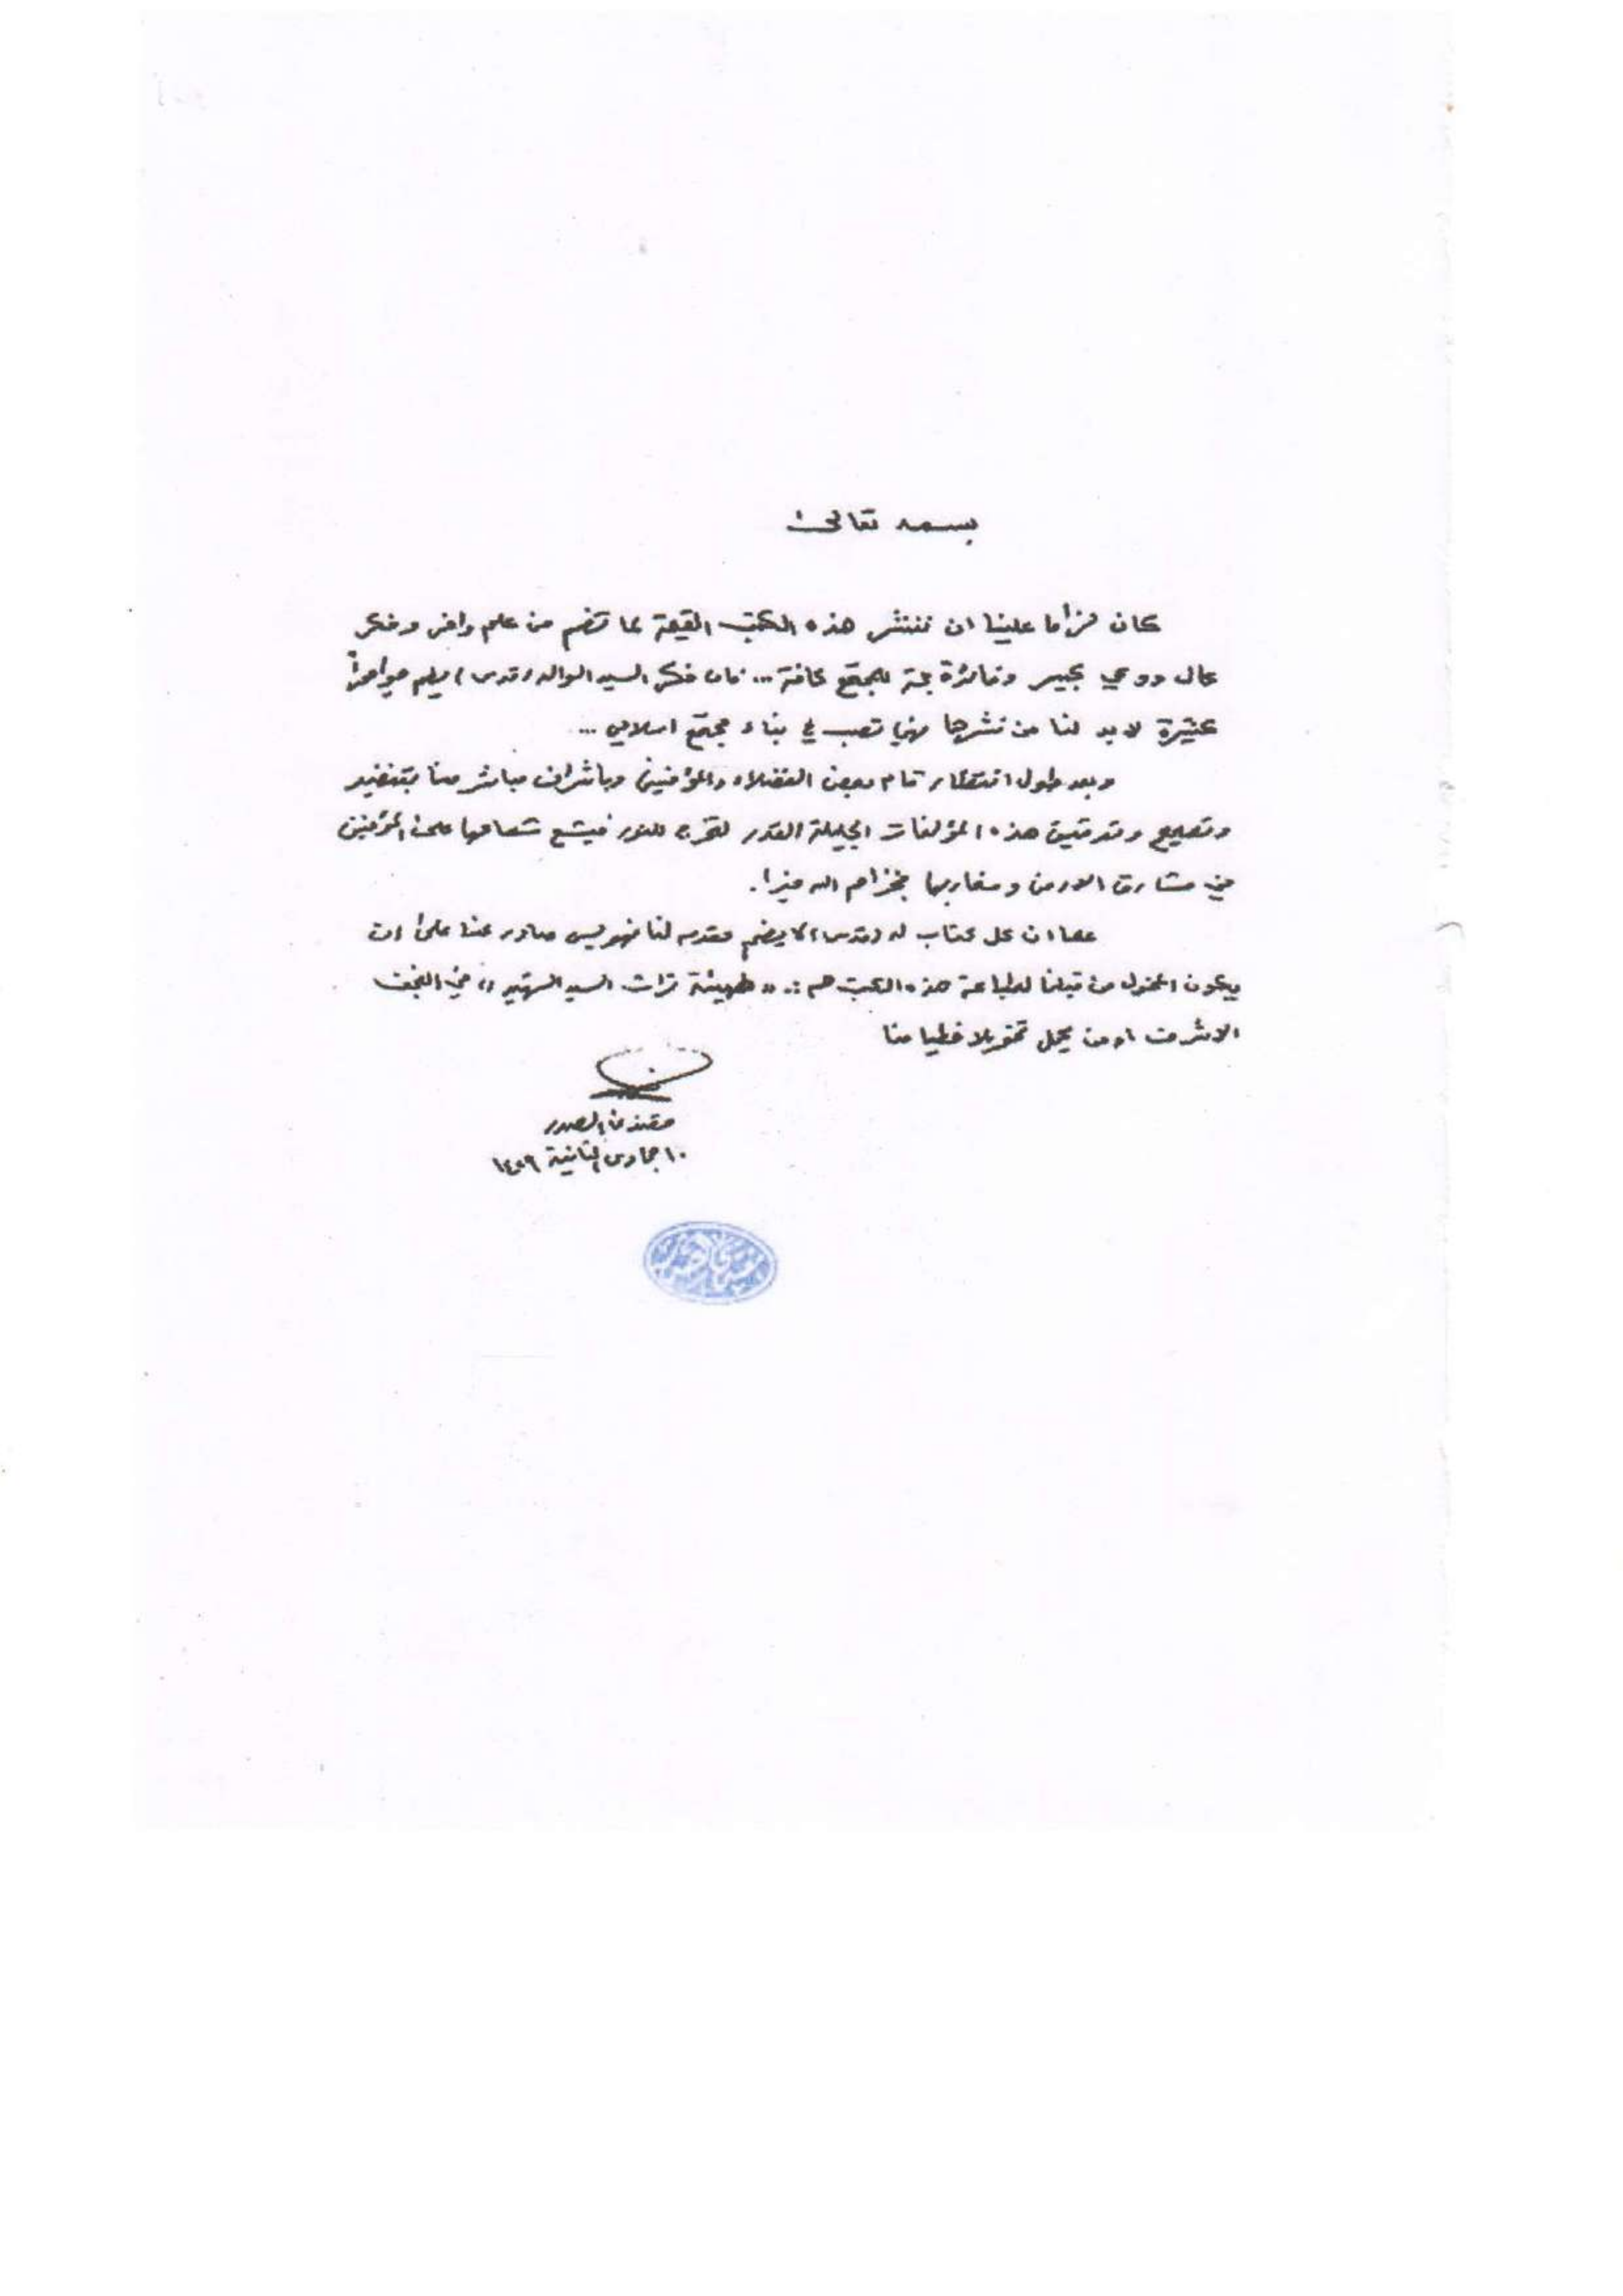 بسمه تعالى
كان لزاما علينا ان ننشر هذه الكتب القيمة لما تضم من علم وافر وفكر
عال ووعي كبير وفائدة جمة للمجتمع كافة ... فان فكر السيد الوالد (قدس) يضم جواهراً
كثيرة لا بد لنا من نشرها فهي تصب في بناء مجتمع اسلامي ...
وبعد طول انتظار قام بعض الفضلاء والمؤمنين وباشراف مباشر منا بتنضيد
وتصحيح وتدقيق هذه المؤلفات الجليلة القدر لتخرج للنور فيشع شعاعها على المؤمنين
في مشارق الارض ومغاربها فجزاهم الله خيرا.
علما ان كل كتاب له (قدس) لا يضم مقدمه لنا فهو ليس صادر عنا على ان
يكون المخول من قبلنا لطباعة هذه الكتب هم :. « هيئة تراث السيد الشهيد » في النجف
الاشرف او من يحمل تخويلا خطيا منا
مقتدى الصدر
١٠ جمادى الثانية ١٤٢٩
مقتدى الصدر